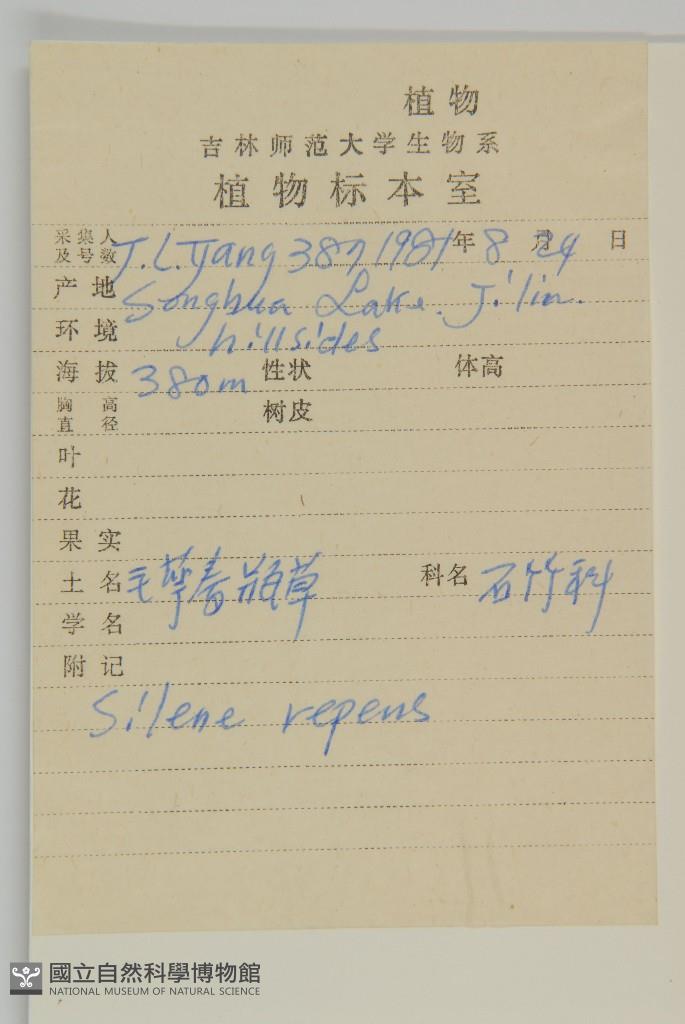 植物
吉林师范大学生物系
植物标本室
采集人及号数 J.L. Yang 387 1981年 8月24日
产地 Songhua Lake. Jilin.
环境 hillsides
海拔 380m 性状 体高
胸高直径 树皮
叶
花
果实
土名 毛萼春瓶草 科名 石竹科
学名
附记
Silene repens
國立自然科學博物館
NATIONAL MUSEUM OF NATURAL SCIENCE